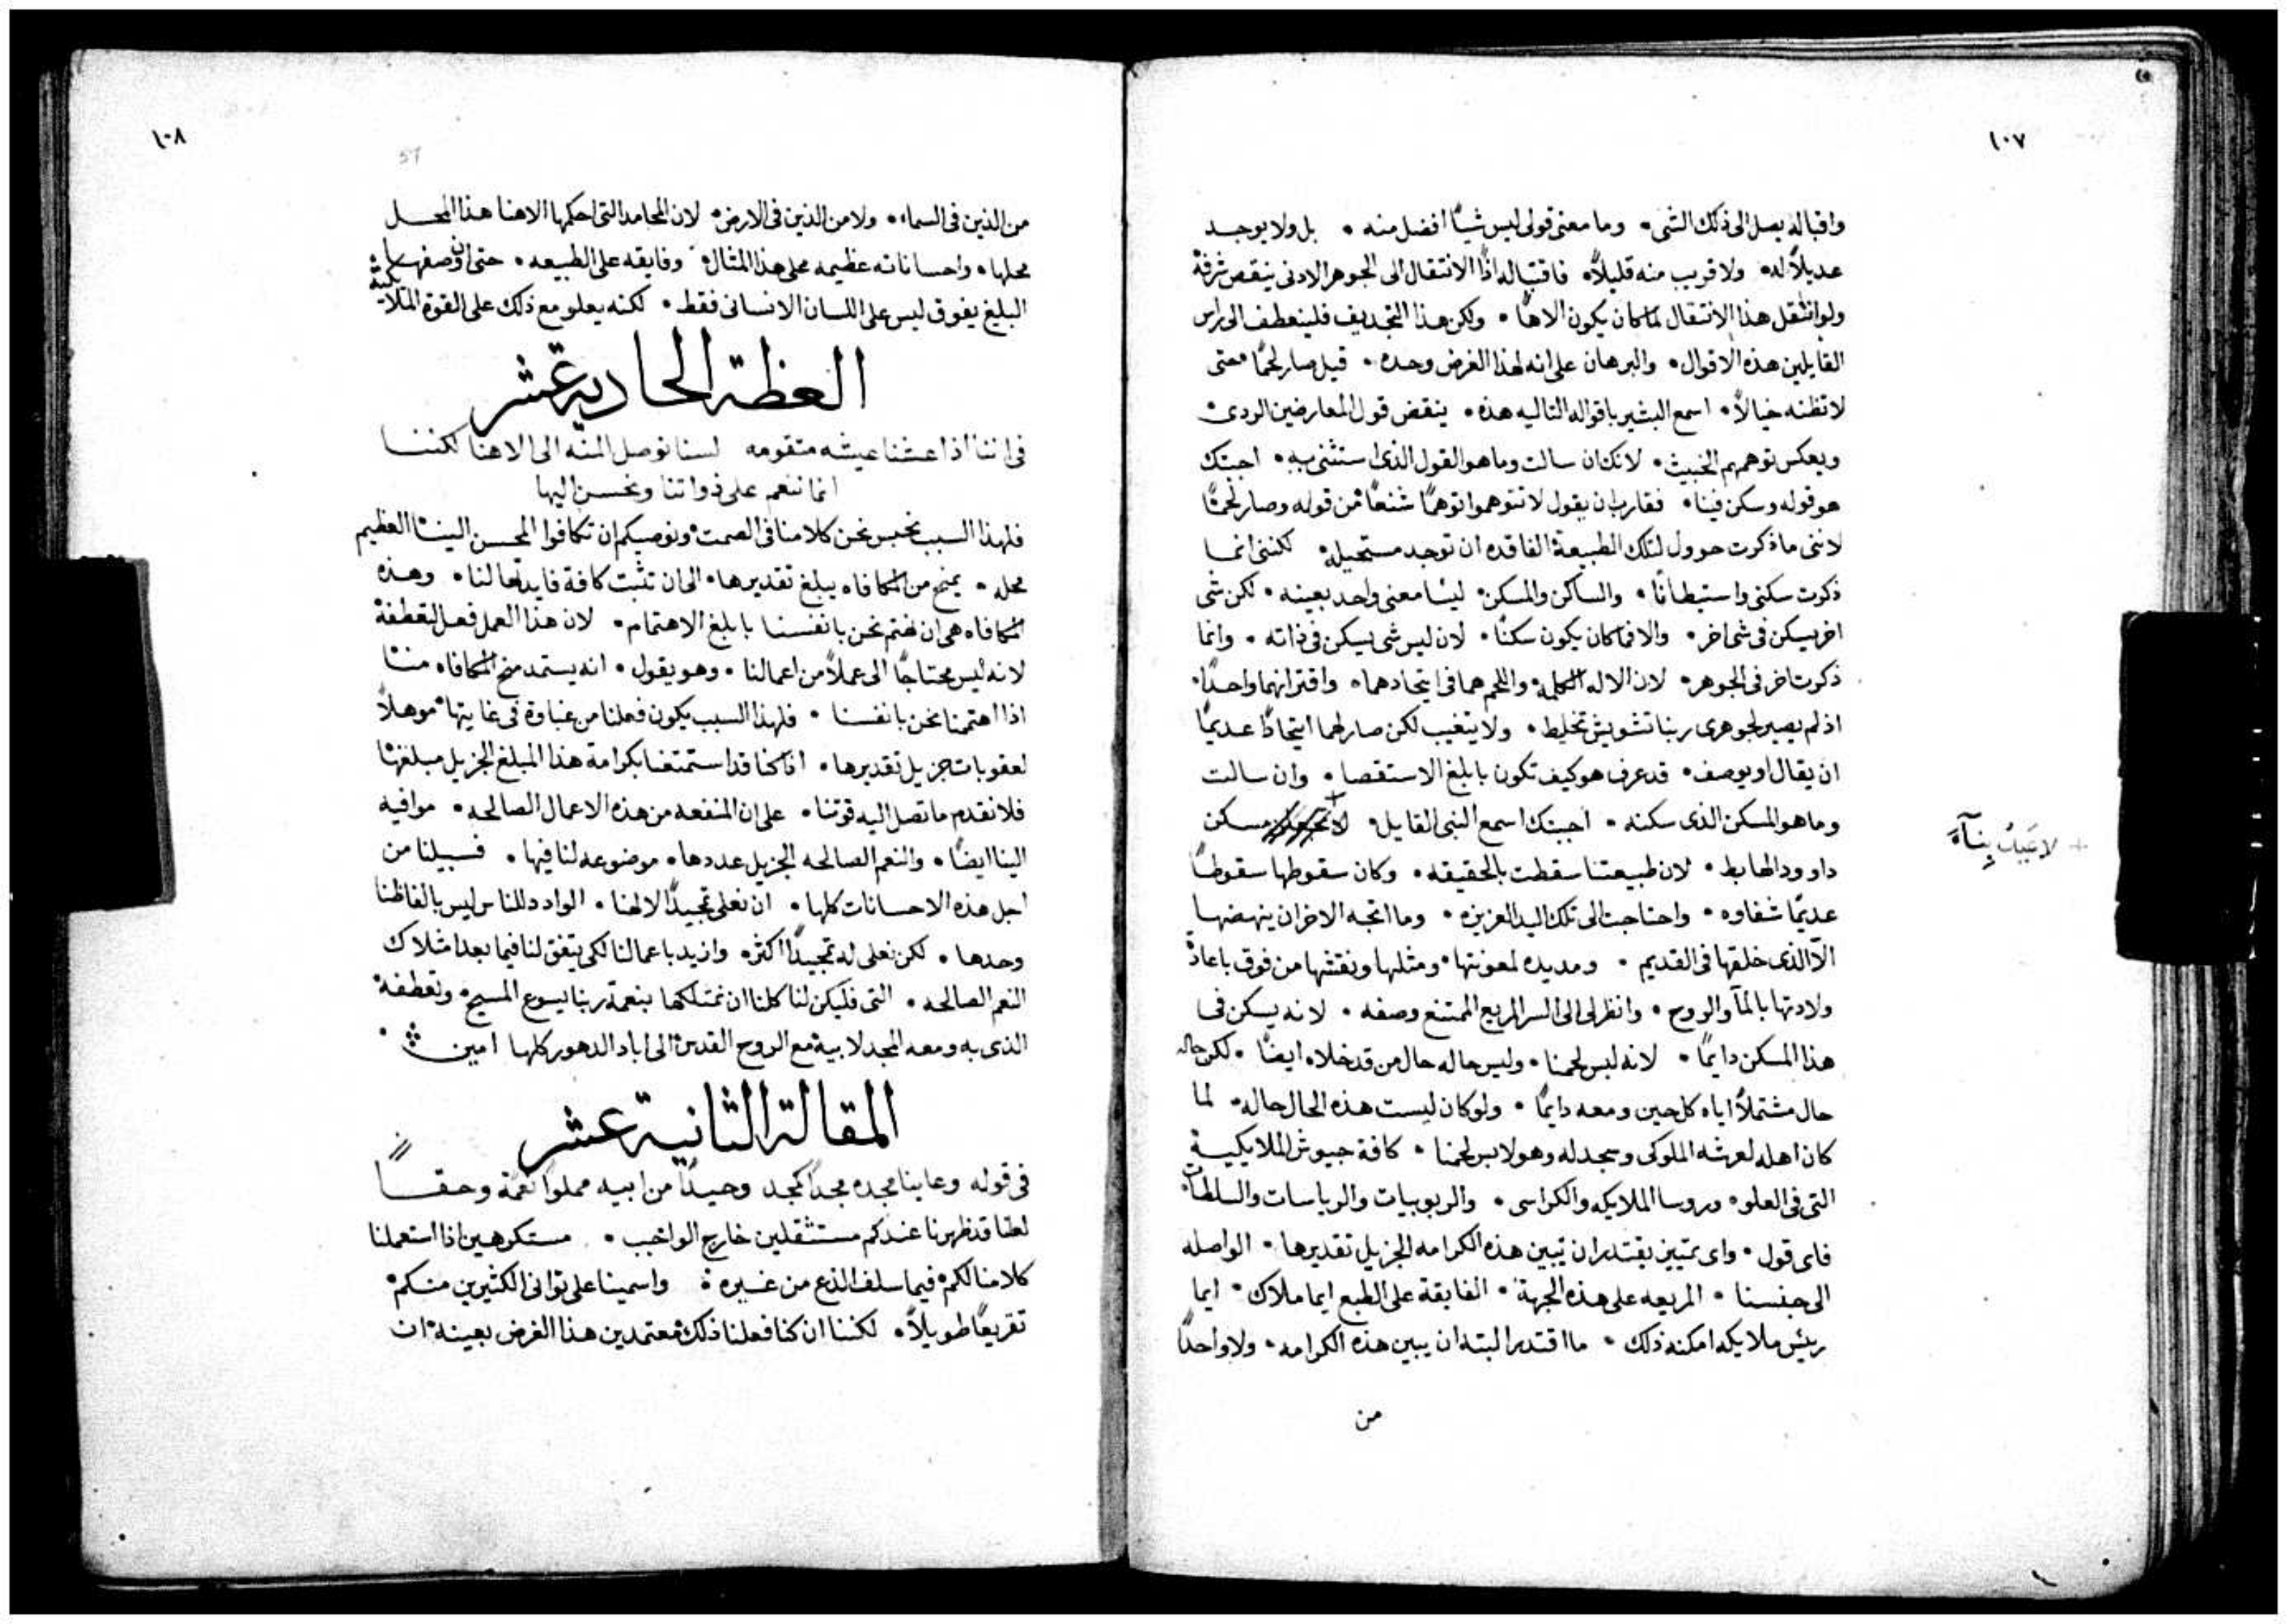 ١٠٧
واقباله يصل الى ذلك الشى • وما معنى قولى ليس شيئًا افضل منه • بل ولا يوجد
عديلاً له • ولا قريب منه قليلاً • فاقتباله اذًا الانتقال الى الجوهر الادنى ينقص شرفه
ولو انتقل هذا الانتقال لما كان يكون الاهًا • ولكن هذا التجديف فلينعطف الى راس
القايلين هذه الاقوال • والبرهان على انه لهذا الغرض وحده • قيل صار لحمًا حتى
لا تظنه خيالاً • اسمع البشير باقواله التاليه هذه • ينقض قول المعارضين الردى
ويعكس توهمهم الخبيث • لانك ان سالت وما هو القول الذى استثنى به • اجبتك
هو قوله وسكن فينا • فقارب ان يقول لا تتوهموا توهمًا شنعًا من قوله وصار لحمًا
لاننى ما ذكرت حوول لتلك الطبيعة الفاقده ان توجد مستحيله • لكننى انما
ذكرت سكنى واستيطانًا • والساكن والمسكن ليسا معنى واحد بعينه • لكن شى
اخر يسكن فى شى اخر • والا فما كان يكون سكنًا • لان ليس شى يسكن فى ذاته • وانما
ذكرت اخر فى الجوهر • لان الاله الكلمه واللحم هما فى ايتحادهما • واقترانهما واحدًا •
اذ لم يصير لجوهرى ربنا تشويش تخليط • ولا يتغيب لكن صار لهما ايتحادًا عديمًا
ان يقال او يوصف • قد عرف هو كيف تكون بابلغ الاستقصا • وان سالت
وما هو المسكن الذى سكنه • اجبتك اسمع النبى القايل • لا مسكن
+ لاعيد بناء
داوود الهابط • لان طبيعتنا سقطت بالحقيقه • وكان سقوطها سقوطًا
عديمًا شفاوه • واحتاجت الى تلك اليد العزيزه • وما اتجه الاخر ان ينهضها
الا الذى خلقها فى القديم • ومد يده لمعونتها • ومثلها ونقشها من فوق باعادة
ولادتها بالمآ والروح • وانظر لى الى السر المريع الممتنع وصفه • لانه يسكن فى
هذا المسكن دايمًا • لانه لبس لحمنا • وليس حاله حال من قد خلاه ايضًا • لكن حاله
حال مشتملاً اياه كل حين ومعه دايمًا • ولو كان ليست هذه الحال حاله • لما
كان اهله لعرشه الملوكى وسجد له وهو لابس لحمنا • كافة جيوش الملايكية
التى فى العلو • وروسا الملايكه والكراسى • والربوبيات والرياسات والسلطات
فاى قول • واى تميز يقتدر ان يبين هذه الكرامه الجزيل تقديرها • الواصله
الى جنسنا • المريعه على هذه الجهة • الفايقة على الطبع ايما ملاك • ايما
ريئس ملايكه امكنه ذلك • ما اقتدر البته ان يبين هذه الكرامه • ولا واحدًا
من
١٠٨
51
من الذين فى السماء • ولا من الذين فى الارض • لان المحامد التى احكمها الاهنا هذا المحل
محلها • واحساناته عظيمه محلى هذا المثال • وفايقه على الطبيعه • حتى ان وصفها
البليغ يفوق ليس على اللسان الانسانى فقط • لكنه يعلو مع ذلك على القوة الملايكية
العظة الحادية عشر
فى اننا اذا عشنا عيشه متقومه لسنا نوصل المنه الى الاهنا لكننا
انما ننعم على ذواتنا ونحسن اليها
فلهذا السبب نحبس نحن كلامنا فى الصمت • ونوصيكم ان تكافوا المحسن الينا العظيم
محله • يمنح من المكافاه يبلغ تقديرها • الى ان تثبت كافة فايدتها لنا • وهذه
المكافاه هى ان نهتم نحن بانفسنا بابلغ الاهتمام • لان هذا العمل فعل لتعطفه
لانه ليس محتاجًا الى عملاً من اعمالنا • وهو يقول • انه يستمد منح المكافاه منا
اذا اهتممنا نحن بانفسنا • فلهذا السبب يكون فعلنا من غباوة فى غايتها • موهلاً
لعقوبات جزيل تقديرها • اذا كنا قد استمتعنا بكرامة هذا المبلغ الجزيل مبلغها
فلا نقدم ما تصل اليه قوتنا • على ان المنفعه من هذه الاعمال الصالحه • موافيه
الينا ايضًا • والنعم الصالحه الجزيل عددها • موضوعه لنا فيها • فسبيلنا من
اجل هذه الاحسانات كلها • ان نعلى تمجيدًا لالهنا • الوادد للناس ليس بالفاظنا
وحدها • لكن نعلى له تمجيدًا اكثر • وازيد باعمالنا لكى يتفق لنا فيما بعد امتلاك
النعم الصالحه • التى فليكن لنا كلنا ان نمتلكها بنعمة ربنا يسوع المسيح • وتعطفه
الذى به ومعه المجد لابيه مع الروح القدس الى اباد الدهور كلها امين
المقالة الثانية عشر
فى قوله وعاينا مجده مجدًا كمجد وحيدًا من ابيه مملوًا نعمة وحقًا
لعلنا قد ظهرنا عندكم مستثقلين خارج الواجب • مستكرهين اذا استعملنا
كلامنا لكم فيما سلف الذع من غيره • واسمينا على توانى الكثيرين منكم
تقريعًا طويلاً • لكننا ان كنا فعلنا ذلك معتمدين هذا الغرض بعينه • ان